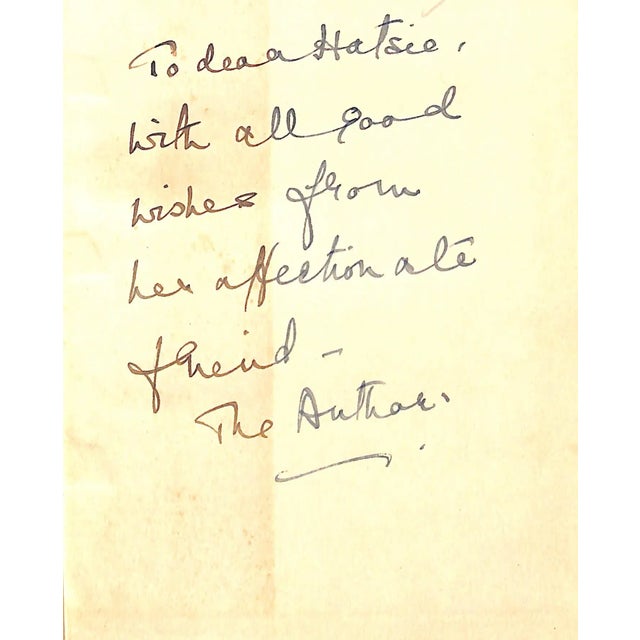 To dear Hatsie,
with all good
wishes from
her affectionate
friend -
The Author.